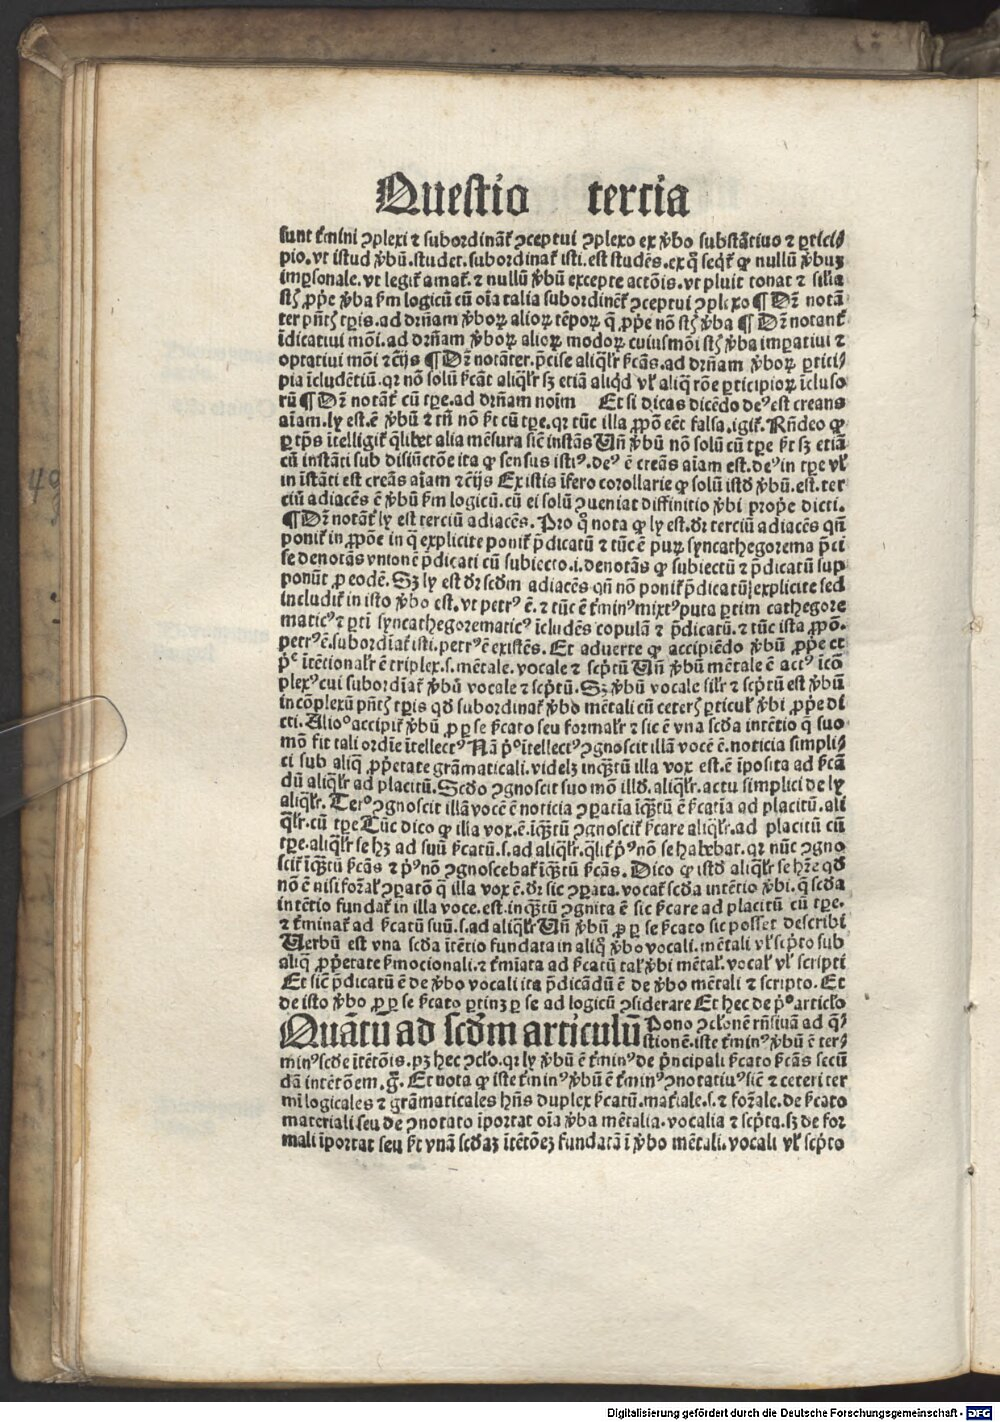 Questio tercia
sunt t̃mini ꝯplexi ⁊ subordinãt̃ ꝯceptui ꝯplexo ex ṽbo substãtiuo ⁊ ꝑtici⸗
pio. vt istud ṽbũ. studet. subordinat̃ isti. est studẽs. ex q̃ seq̃t̃ ꝙ nullũ ṽbuꝫ
imꝑsonale. vt legit̃ amat̃. ⁊ nullũ ṽbũ excepte actõis. vt pluit tonat ⁊ silĩa
st̃ ꝓp̃e ṽba s̃m logicũ cũ oĩa talia subordinẽt̃ ꝯceptui ꝯplexo ¶ Dr̃ notã
ter pñt̃ tꝑis. ad dr̃ñam ṽboꝝ alioꝝ tẽpoꝝ q̃ ꝓp̃e nõ st̃ ṽba ¶ Dr̃ notant̃
ĩdicatiui mõi. ad dr̃ñam ṽboꝝ alioꝝ modoꝝ cuiusmõi st̃ ṽba imꝑatiui ⁊
optatiui mõi ⁊c̃ijs ¶ Dr̃ notãter. p̃cise aliq̃lr̃ s̃cãs. ad dr̃ñam ṽboꝝ ꝑtici⸗
pia ĩcludẽtiũ. qr nõ solũ s̃cãt aliq̃lr̃ sꝫ etiã aliq̃d vl̃ aliq̃ rõe ꝑticipioꝝ ĩcluso
rũ ¶ Dr̃ notãt̃ cũ tꝑe. ad dr̃ñam noĩm Et si dicas dicẽdo deꝰ est creans
aĩam. ly est. ẽ ṽbũ ⁊ tñ nõ s̃t cũ tꝑe. qr tũc illa ꝓpõ eẽt falsa. igit̃. Rñdeo ꝙ
ꝑ tp̃s ĩtelligit̃ q̃libet alia mẽsura sic̃ instãs Uñ ṽbũ nõ solũ cũ tꝑe s̃t sꝫ etiã
cũ instãti sub disiũctõe ita ꝙ sensus istiꝰ. deꝰ ẽ creãs aĩam est. deꝰ in tꝑe vl̃
in ĩstãti est creãs aĩam ⁊c̃ijs Ex istis ĩfero corollarie ꝙ solũ istd̃ ṽbũ. est. ter
ciũ adiacẽs ẽ ṽbũ s̃m logicũ. cũ ei solũ ꝯueniat diffinitio ṽbi prop̃e dicti.
¶ Dr̃ notãt̃ ly est terciũ adiacẽs. Pro q̊ nota ꝙ ly est. dr̃ terciũ adiacẽs qñ
ponit̃ in ꝓpõe in q̃ explicite ponit̃ p̃dicatũ ⁊ tũc ẽ puꝝ syncathegorema p̃ci
se denotãs vnionẽ p̃dicati cũ subiecto. i. denotãs ꝙ subiectũ ⁊ p̃dicatũ sup
ponũt ꝓ eodẽ. Sꝫ ly est dr̃ scd̃m adiacẽs qñ nõ ponit̃ p̃dicatũ explicite sed
includit̃ in isto ṽbo est. vt petrꝰ ẽ. ⁊ tũc ẽ t̃minꝰ mixtꝰ puta ꝑtim cathegore
maticꝰ ⁊ ꝑti syncathegorematicꝰ ĩcludẽs copulã ⁊ p̃dicatũ. ⁊ tũc ista ꝓpõ.
petrꝰ ẽ. subordĩat̃ isti. petrꝰ ẽ existẽs. Et aduerte ꝙ accipiẽdo ṽbũ ꝓp̃e et
p̃ᵉ ĩtẽtionalr̃ ẽ triplex. s. mẽtale. vocale ⁊ scp̃tũ Uñ ṽbũ mẽtale ẽ actꝰ ĩcõ
plexꝰ cui subordĩat̃ ṽbũ vocale ⁊ scp̃tũ. Sꝫ ṽbũ vocale silr̃ ⁊ scp̃tũ est ṽbũ
incõplexũ pñt̃ tꝑis qd̃ subordinat̃ ṽbo mẽtali cũ ceter̃ ꝑticul̃ ṽbi ꝓp̃e di
cti. Alioº accipit̃ ṽbũ ꝓ ꝑ se s̃cato seu formalr̃ ⁊ sic ẽ vna scd̃a intẽtio q̃ suo
mõ fit tali ordĩe ĩtellectꝰ Nã p̃º ĩtellectꝰ ꝯgnoscit illã vocẽ ẽ. noticia simpli⸗
ci sub aliq̃ ꝓp̃etate grãmaticali. videlꝫ inq̃ꝫtũ illa vox est. ẽ ĩposita ad s̃cã
dũ aliq̃lr̃ ad placitũ. Scd̃o ꝯgnoscit suo mõ illd̃. aliq̃lr̃. actu simplici de ly
aliq̃lr̃. Terº ꝯgnoscit illã vocẽ ẽ noticia ꝯꝑatĩa ĩq̃ꝫtũ ẽ s̃catĩa ad placitũ. ali
q̃lr̃. cũ tꝑe Tũc dico ꝙ illa vox. ẽ. ĩq̃ꝫtũ ꝯgnoscit̃ s̃care aliq̃lr̃. ad placitũ cũ
tꝑe. aliq̃lr̃ se hꝫ ad suũ s̃catũ. s. ad aliq̃lr̃. q̃lit̃ p̃ꝰ nõ se habebat. qr nũc ꝯgno
scit̃ ĩq̃ꝫtũ s̃cãs ⁊ p̃ꝰ nõ ꝯgnoscebat̃ ĩq̃ꝫtũ s̃cãs. Dico ꝙ istd̃ aliq̃lr̃ se hr̃e qd̃
nõ ẽ nisi for̃al̃ ꝯꝑatõ q̃ illa vox ẽ. dr̃ sic ꝯꝑata. vocat̃ scd̃a intẽtio ṽbi. q̃ scd̃a
intẽtio fundat̃ in illa voce. est. inq̃ꝫtũ ꝯgnita ẽ sic s̃care ad placitũ cũ tꝑe.
⁊ t̃minat̃ ad s̃catũ suũ. s. ad aliq̃lr̃ Uñ ṽbũ ꝓ ꝑ se s̃cato sic posset describi
Uerbũ est vna scd̃a ĩtẽtio fundata in aliq̃ ṽbo vocali. mẽtali vl̃ scp̃to sub
aliq̃ ꝓp̃etate s̃mocionali. ⁊ t̃mĩata ad s̃catũ tal̃ ṽbi mẽtal̃. vocal̃ vl̃ scripti
Et sic̃ p̃dicatũ ẽ de ṽbo vocali ita p̃dicãdũ ẽ de ṽbo mẽtali ⁊ scripto. Et
de isto ṽbo ꝓ ꝑ se s̃cato ꝑtinꝫ ꝑ se ad logicũ ꝯsiderare Et hec de p̃º articl̃o
Quãtũ ad scd̃m articulũ Pono ꝯcl̃onẽ rñsiuã ad q̃⸗
stionẽ. iste t̃minꝰ ṽbũ ẽ ter⸗
minꝰ scd̃e ĩtẽtõis. pꝫ hec ꝯcl̃o. qr ly ṽbũ ẽ t̃minꝰ de p̃ncipali s̃cato s̃cãs secũ
dã intẽtõem. g̃. Et nota ꝙ iste t̃minꝰ ṽbũ ẽ t̃minꝰ ꝯnotatiuꝰ sic̃ ⁊ ceteri ter
mĩ logicales ⁊ grãmaticales hñs duplex s̃catũ. mat̃iale. s. ⁊ for̃ale. de s̃cato
materiali seu de ꝯnotato ĩportat oĩa ṽba mẽtalia. vocalia ⁊ scp̃ta. sꝫ de for
mali ĩportat seu s̃t vnã scd̃aꝫ ĩtẽtõeꝫ fundatã ĩ ṽbo mẽtali. vocali vl̃ scp̃to
Digitalisierung gefördert durch die Deutsche Forschungsgemeinschaft - DFG